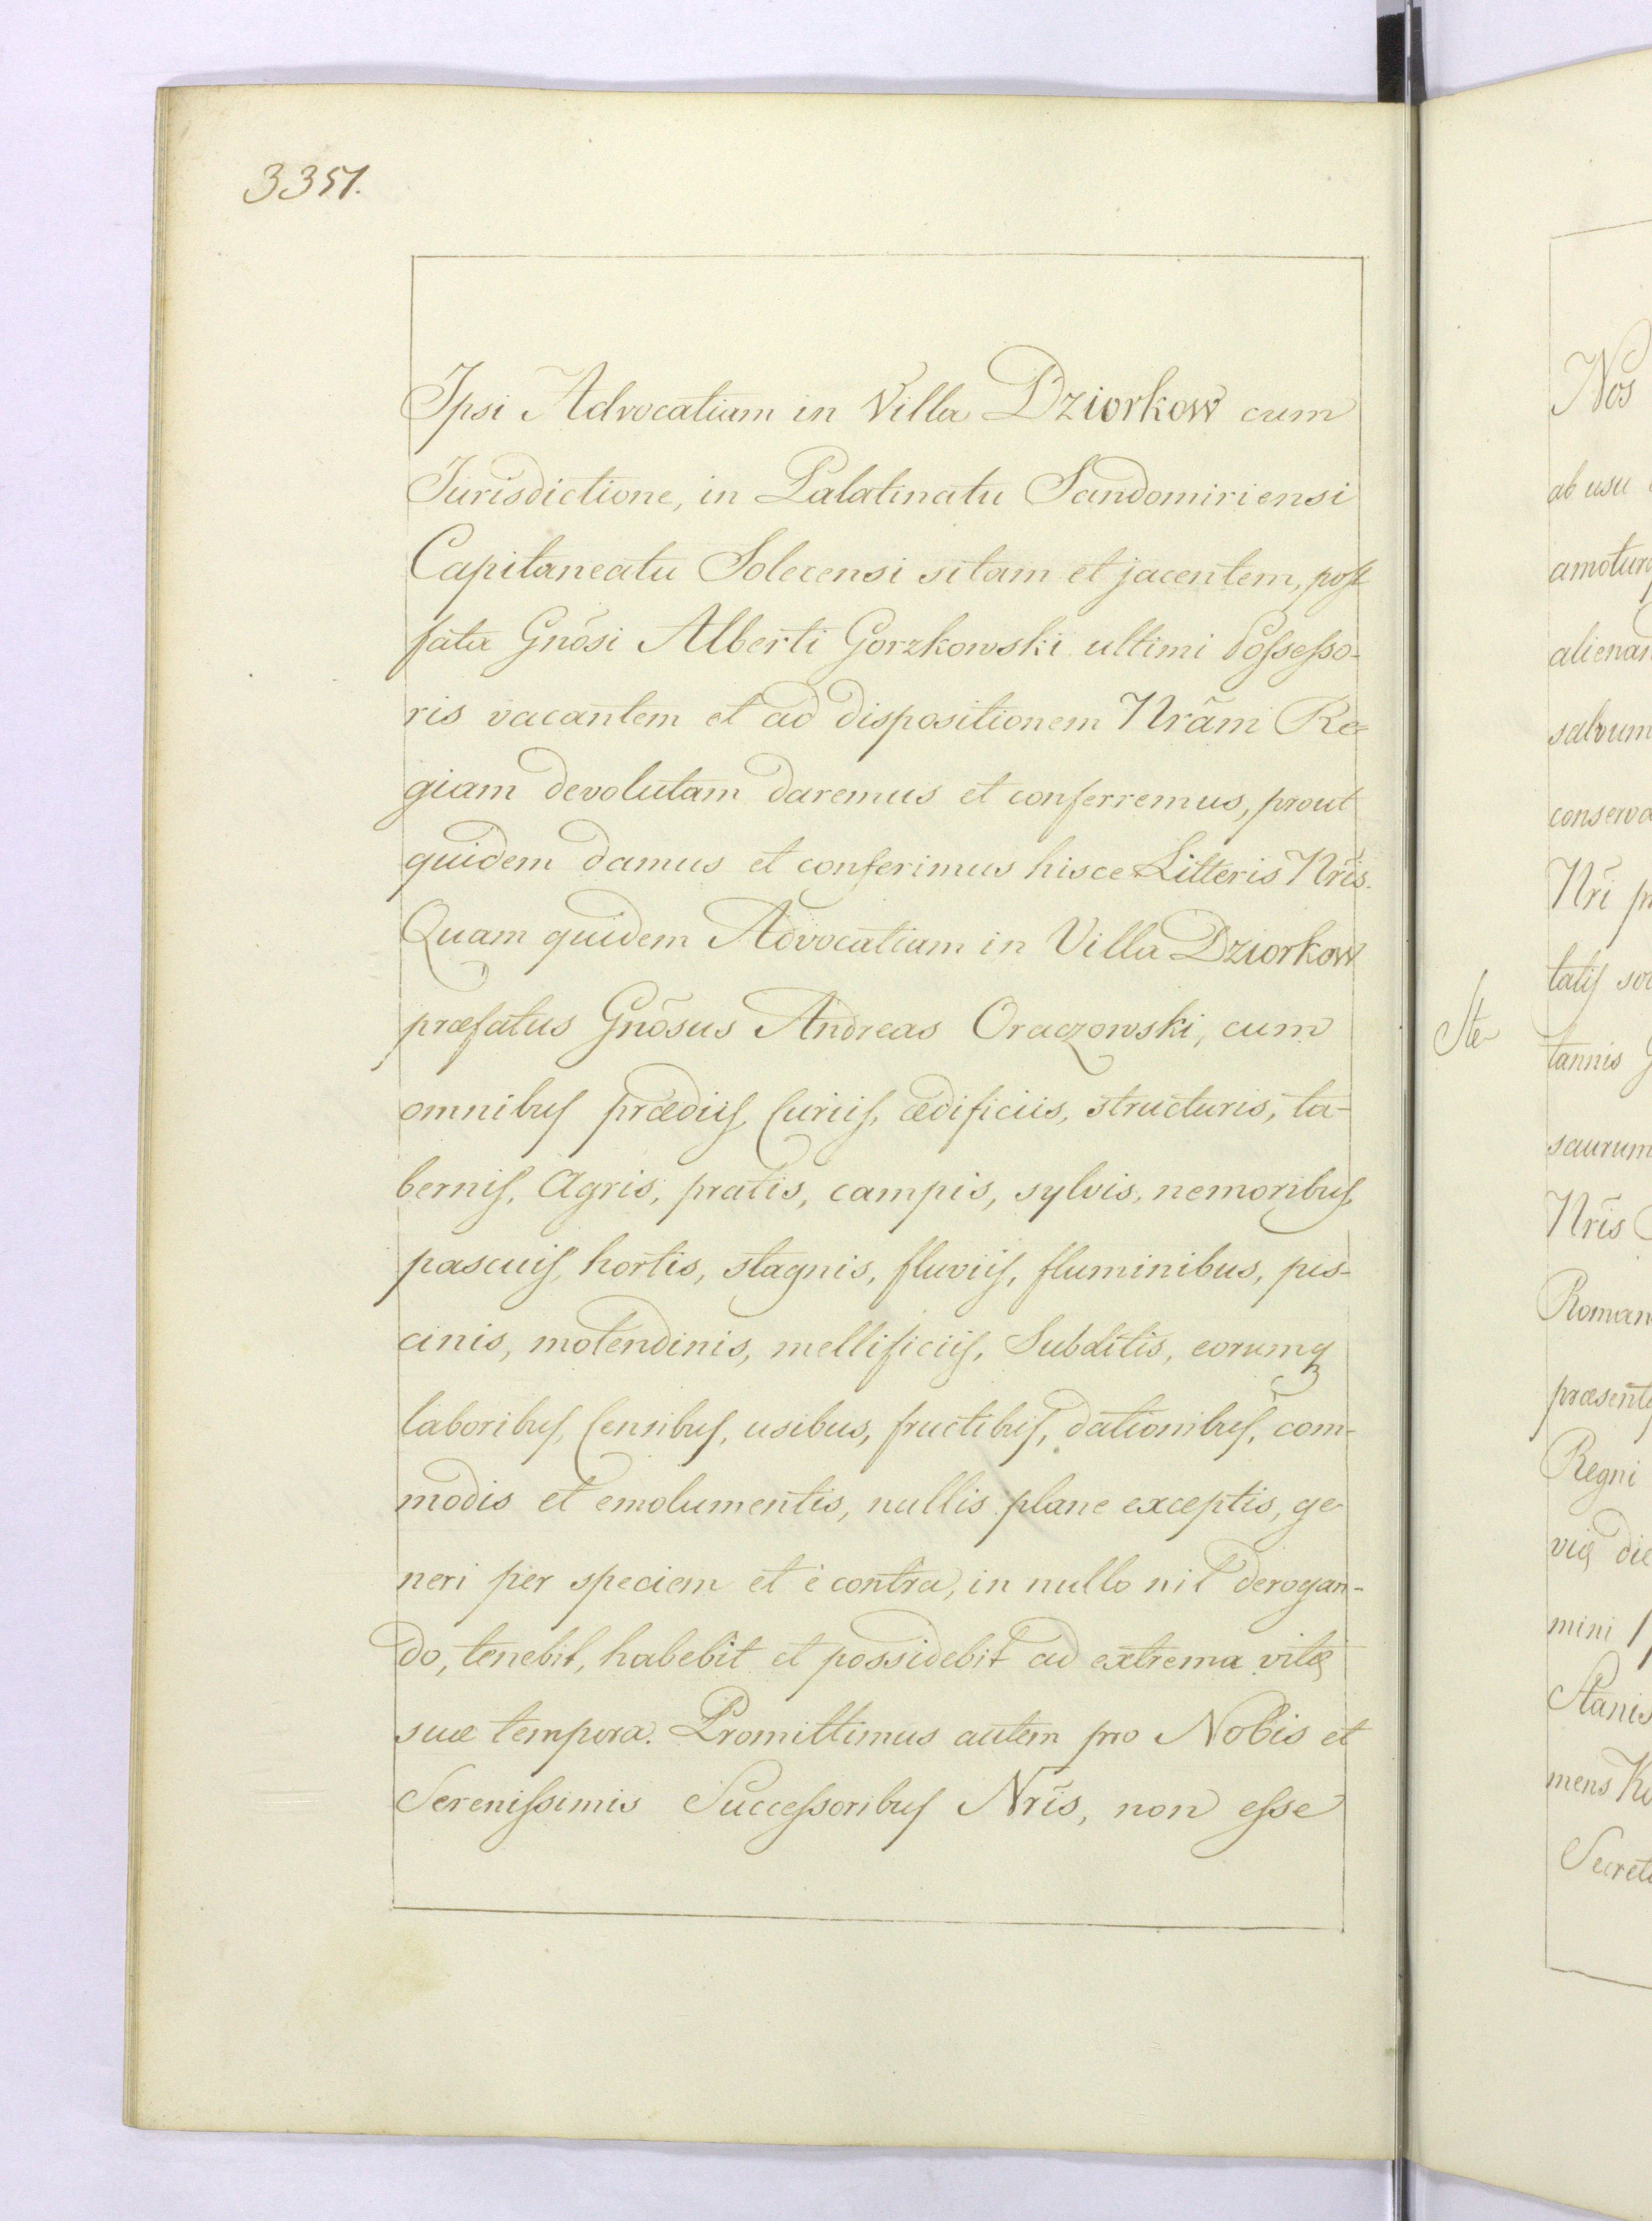 3351.
Ipsi Advocatiam in Villa Dziorkow cum
Jurisdictione, in Palatinatu Sandomiriensi
Capitaneatu Solecensi sitam et jacentem, post
fata Gnõsi Alberti Gorzkowski ultimi Possesso-
ris vacantem et ad dispositionem Nrãm Re-
giam devolutam daremus et conferremus, prout
quidem damus et conferimus hisce Litteris Nrĩs.
Quam quidem Advocatiam in Villa Dziorkow
præfatus Gnõsus Andreas Oraczowski, cum
omnibus prædiis, Curiis, ædificiis, structuris, ta-
bernis, Agris, pratis, campis, sylvis, nemoribus,
pascuis, hortis, stagnis, fluviis, fluminibus, pis-
cinis, molendinis, mellificiis, Subditis, eorumq
laboribus, Censibus, usibus, fructibus, dationibus, com-
modis et emolumentis, nullis plane exceptis, ge-
neri per speciem et è contra, in nullo nil derogan-
do, tenebit, habebit et possidebit ad extrema vitæ
suæ tempora. Promittimus autem pro Nobis et
Serenissimis Successoribus Nrĩs, non esse
Nos
ab usu
alienan
salvum
conserva
Nrĩ
Ste
tannis
saurum
Nrĩs
Roman
præsent
Regni
mini
Stanis
mens
Secret